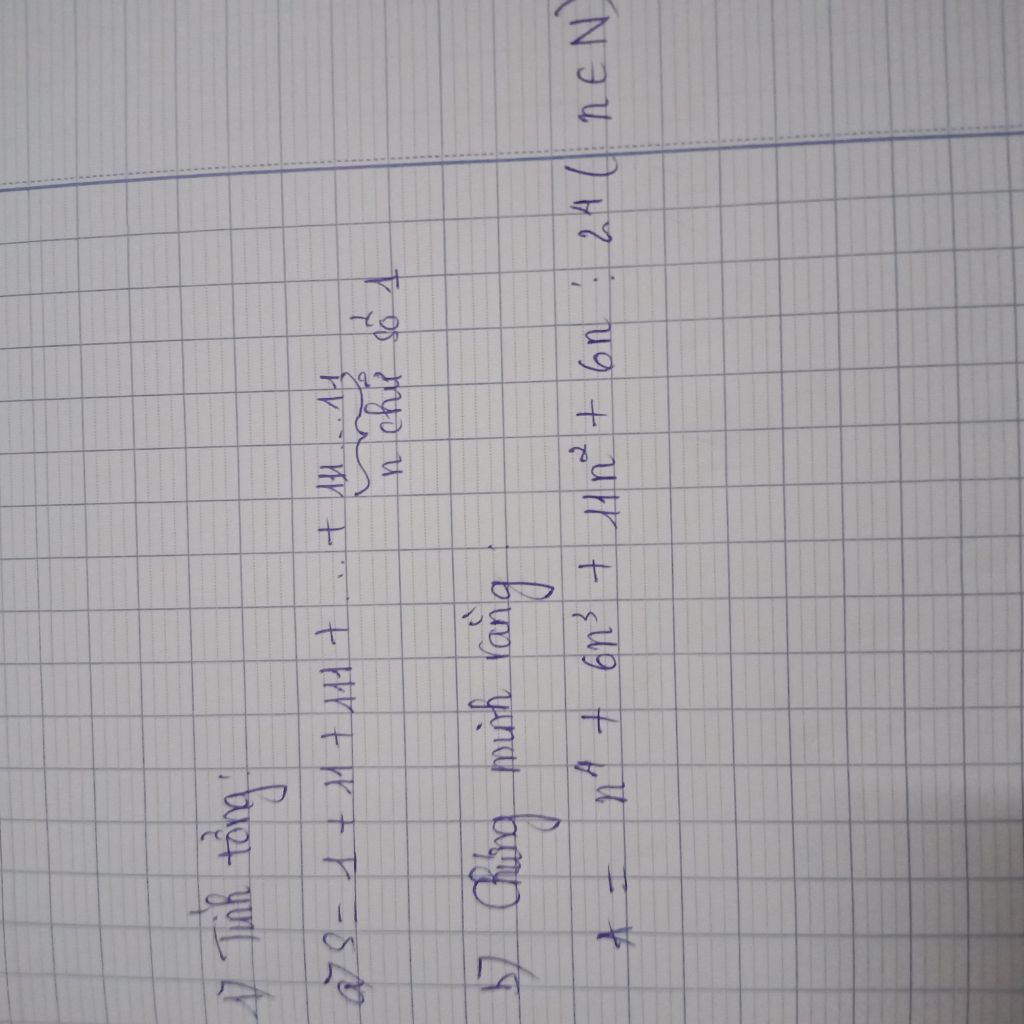 1) Tính tổng:
a) S = 1 + 11 + 111 + ... + 111...11
n chữ số 1
b) Chứng minh rằng:
A = n⁴ + 6n³ + 11n² + 6n ⋮ 24 ( n ∈ N)